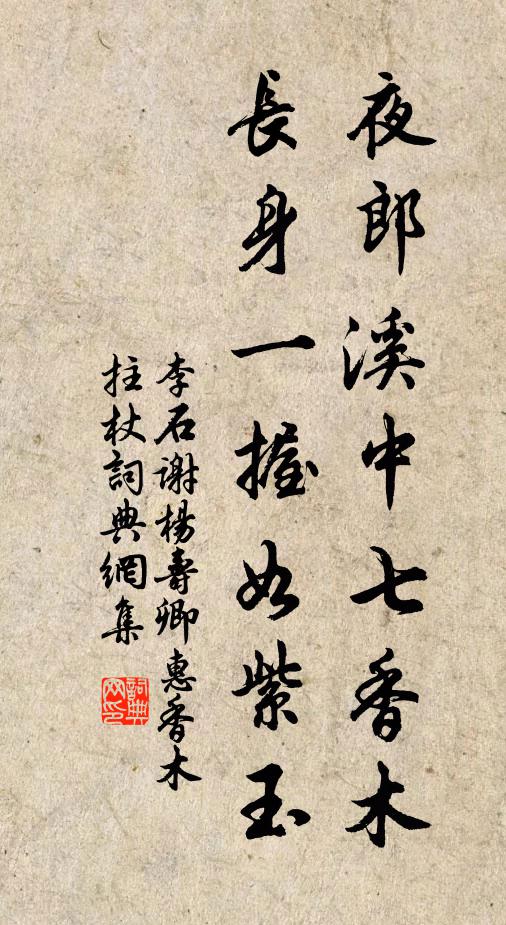 夜郎溪中七香木
長身一握如紫玉
李石謝楊壽卿惠香木
拄杖詞典網集
詞典
网印